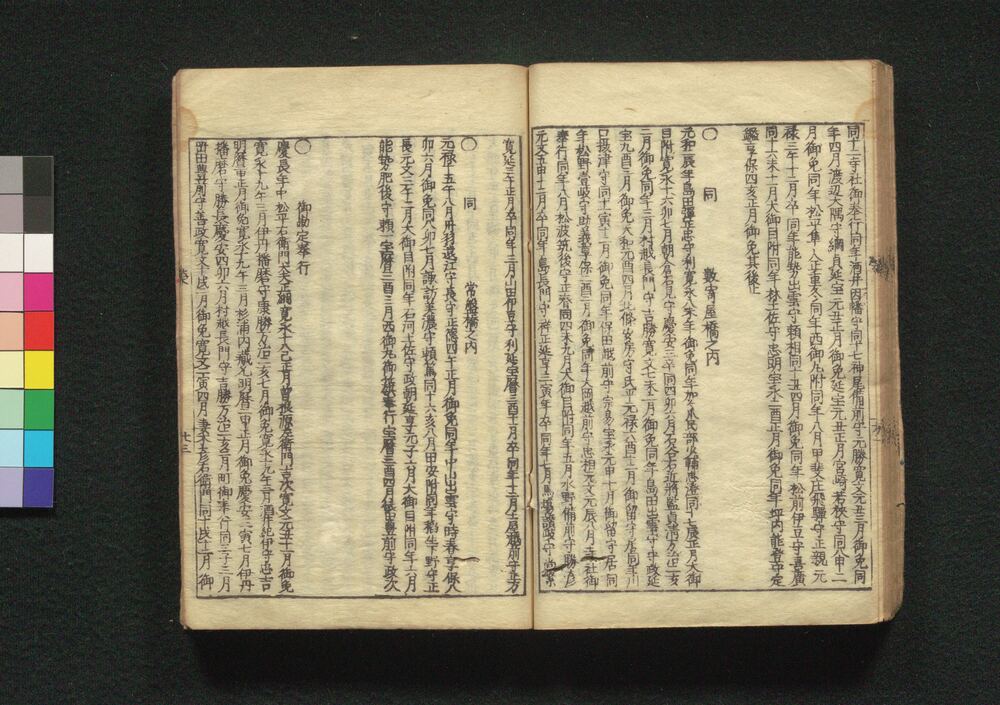 同十二寺社御奉行同年酒井因幡守同十七神尾備前守元勝寛文元丑三月御免同
年四月渡辺大隅守綱貞延宝元丑正月御免延宝元丑正月宮崎若狭守同八申二
月御免同年松平隼人正重冬同年西御丸附同年八月甲斐庄飛騨守正親元
禄三午十二月卒同年能勢出雲守頼相同十丑四月御免同年松前伊豆守嘉廣
同十六未十一月大御目附同年林土佐守忠明宝永二酉正月御免同年坪内能登守定
鑑享保四亥正月御免其後止
〇 同 数寄屋橋之内
元和辰年島田弾正忠守利寛永八未年御免同年加々爪民部少輔忠澄同十七辰正月大御
目附寛永十六卯七月朝倉石見守慶安三卒同四卯六月石谷右近将監貞清万治二亥
二月御免同年三月村越長門守吉勝寛文七未二月御免同年島田出雲守守政延
宝九酉三月御免天和元酉四月北條安房守氏平元禄六酉十二月御留守居同年川
口摂津守同十一寅十二月御免同年保田越前守宗易宝永元申十月御留守居同
年松野壱岐守助義享保二酉二月御免同年大岡越前守忠相元文元辰八月寺社御
奉行同年八月松波筑後守正春同四未九月大御目附同年五月水野備前守勝彦
元文五申十二月卒同年島長門守祥正延享三寅年卒同年七月馬場讃岐守尚繁
寛延三午正月卒同年三月山田伊豆守利延宝暦三酉十一月卒同年十二月土屋越前守正方
〇 同 常盤橋之内
元禄十五午八月丹羽遠江守長守正徳四午正月御免同年中山出雲守時春享保八
卯六月御免同八卯七月諏訪美濃守頼篤同十六亥八月田安附同年稲生下野守正
長元文三午十二月大御目附同年石河土佐守政朝延享元子六月大御目附同年六月
能勢肥後守頼一宝暦三酉三月西御丸御旗奉行宝暦三酉四月依田豊前守政次
〇 御勘定奉行
慶長年中松平右衛門大夫正綱寛永十八巳正月曽根源左衛門吉次寛文元丑十一月御免
寛永十九年三月伊丹播磨守康勝万治二亥七月御免寛永十九年三月酒井紀伊守忠吉
明暦二申正月御免寛永十九年三月杉浦内蔵允明暦二申正月御免慶安三寅七月伊丹
播磨守勝長慶安四卯六月村越長門守吉勝万治二亥二月町御奉行同三子三月
岡田豊前守善政寛文十戌二月御免寛文二寅四月妻木彦右衛門同十戌十二月御
廿三